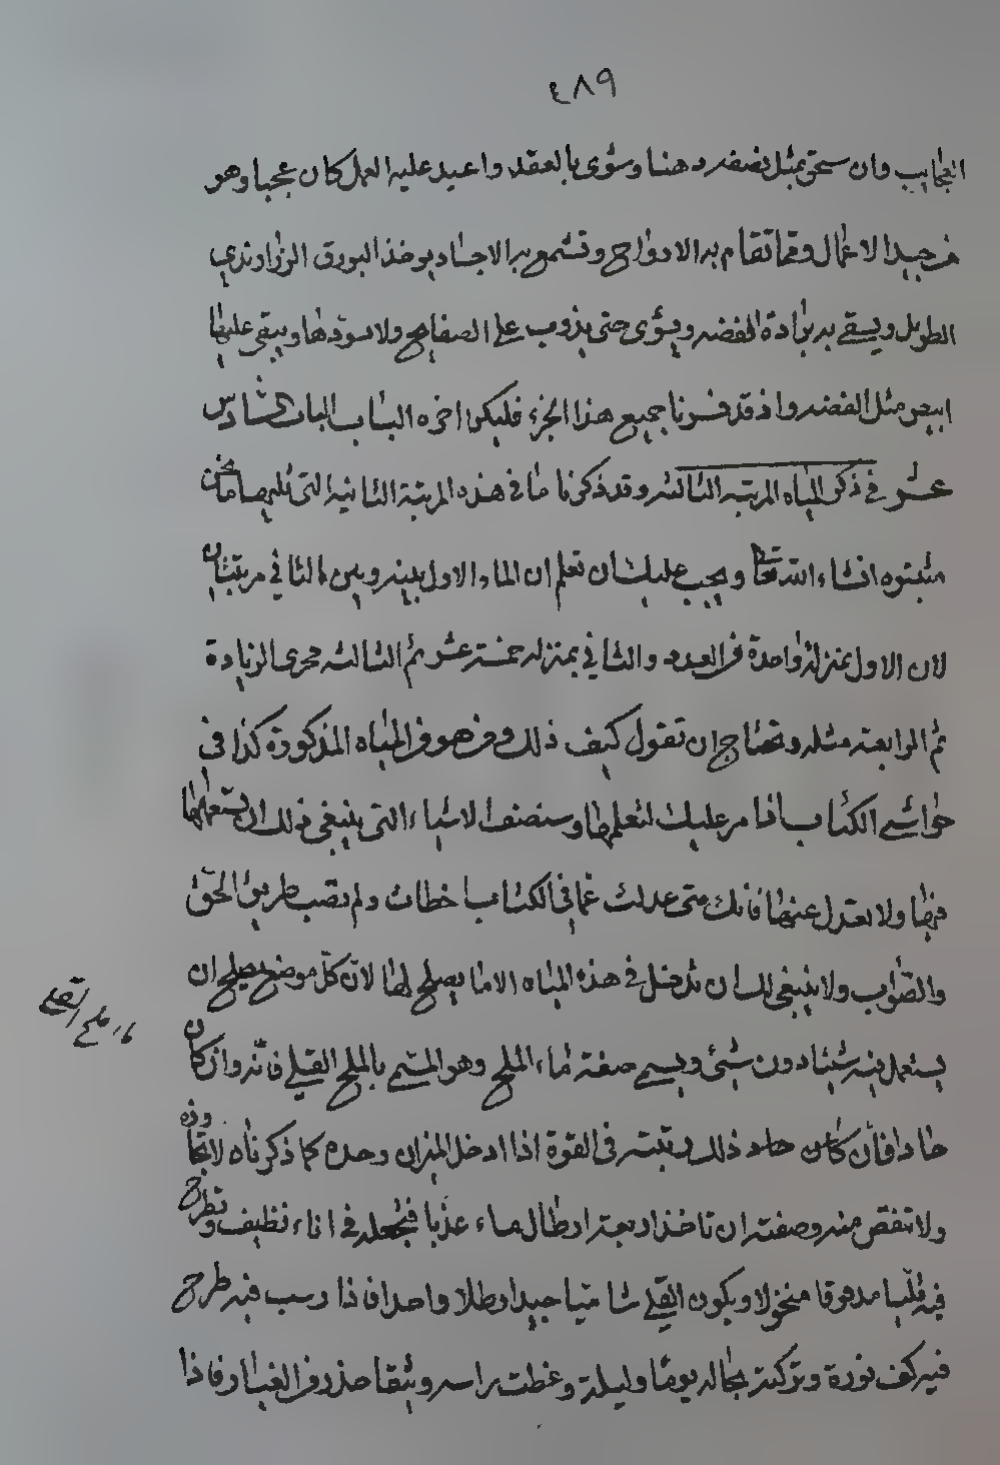 ٤٨٩
العجايب وان سحق بمثل نصفه دهنا وسوى بالعقد واعيد عليه العمل كان عجبا وهو
من جيد الاعمال ومما تقام به الارواح وتشمع به الاجساد يوخذ البورق الزراوندي
الطويل ويسقى به برادة الفضه ويشوى حتى يذوب على الصفايح ولا سودها ويبقى عليها
ابيض مثل الفضه واذ قد فسرنا جميع هذا الجزء فليكن اخره الباب الباب السادس
عشر في ذكر المياه المرتبه الثالثه وقد ذكرنا ما في هذه المرتبة الثانيه التى تليها ما نحن
مثبتوه انشاء الله تعالى ويجب عليك ان تعلم ان الماء الاول بينه وبين الثاني مرتبتان
لان الاول بمنزلة واحدة من العدد والثاني بمنزله خمسة عشر ثم الثالثه مجرى الزيادة
ثم الرابعة مثله وتحتاج ان تقول كيف ذلك ومن هو من المياه المذكورة كذا في
حواشي الكتاب اذا مر عليك لتعلمها وسنصف الاشياء التى ينبغى لك ان تستعملها
فيها ولا تعدل عنها فانك متى عدلت عما في الكتاب اخطات ولم تصب طريق الحق
والصواب ولا ينبغي لك ان تدخل في هذه المياه الا ما يصلح لها لان كل موضع يصلح ان
يستعمل فيه شيئا دون شيئ ويسمى صفة ماء الملح وهو المسمى بالملح القيلي فانه وان كان
حادا فان كان حاد ذلك رتبته فى القوة اذا ادخل الميزان وحده كما ذكرناه لا تتجاوزه
ولا تنقص منه وصفته ان تاخذ اربعة ارطال ماء عذبا فتجعله في اناء نظيف وتطرح
فيه قليا مدقوقا منخولا ويكون القلى شاميا جيدا رطلا واحدا فاذا رسب فيه طرح
فيه كف نورة وتركته بحاله يوما وليلة وغطت راسه وثيقا حذر من الغبار فاذا
ماء ملح القلي